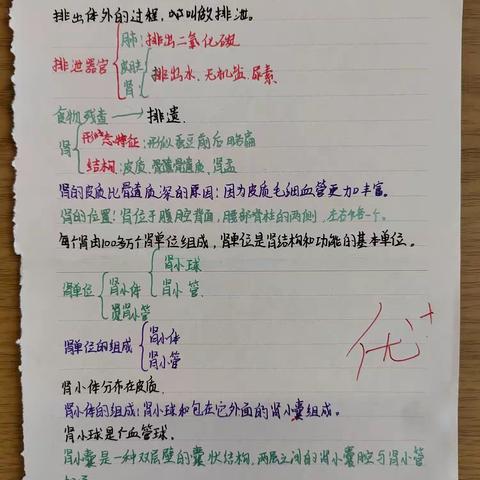 排出体外的过程,叫做排泄。
肺:排出二氧化碳
排泄器官 皮肤
肾 排出水、无机盐、尿素
食物残渣→排遗
肾 形态特征:形似蚕豆前后略扁
结构:皮质、髓质、肾盂
肾的皮质比髓质深的原因:因为皮质毛细血管更加丰富。
肾的位置:肾位于腹腔背面,腰部脊柱的两侧,左右各一个。
每个肾由100多万个肾单位组成,肾单位是肾结构和功能的基本单位。
肾小球
肾单位 肾小体 肾小管
肾小管
肾单位的组成 肾小体
肾小管
肾小体分布在皮质
肾小体的组成:肾小球和包在它外面的肾小囊组成。
肾小球是个血管球。
肾小囊是一种双层壁的囊状结构,两层之间的肾小囊腔与肾小管
优+